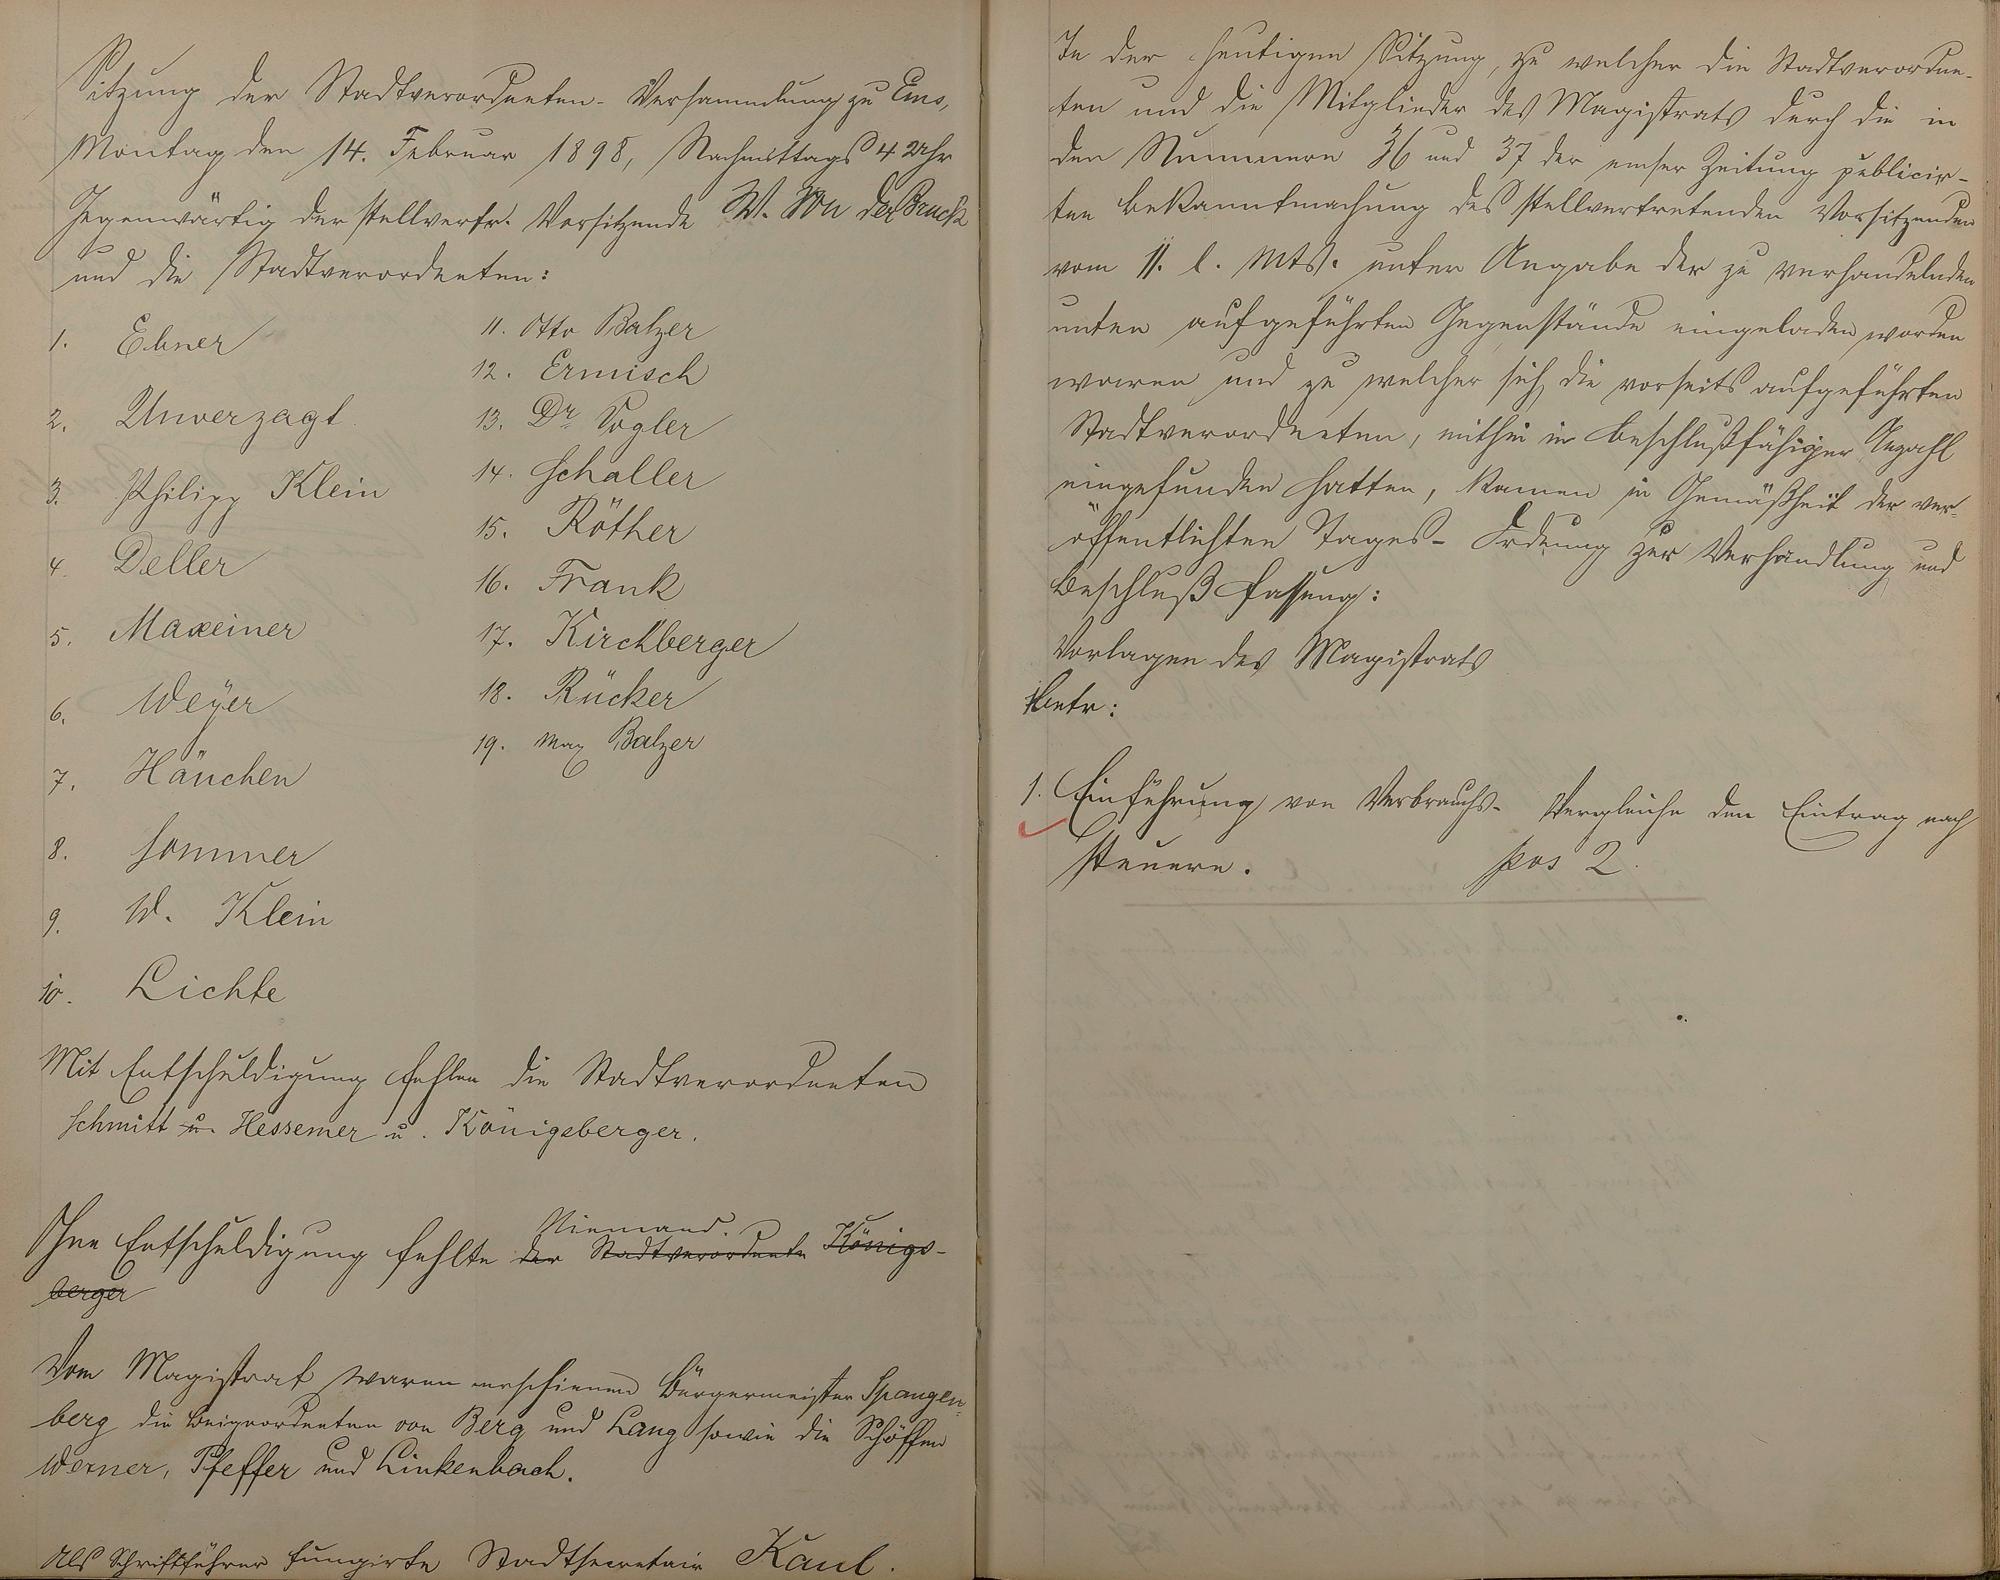 Sitzung der Stadtverordneten-Versammlung zu Ems,
Montag den 14. Februar 1898, Nachmittags 4 Uhr
Gegenwärtig der stellvertr. Vorsitzende W. Von der Bruck
und die Stadtverordneten:
1. Ebner
2. Unverzagt
3. Philipp Klein
4. Deller
5. Maxeiner
6. Weyer
7. Häuchen
8. Sommer
9. W. Klein
10. Lichte
11. Otto Balzer
12. Ermisch
13. Dr Vogler
14. Schaller
15. Röther
16. Frank
17. Kirchberger
18. Rücker
19. Max Balzer
Mit Entschuldigung fehlen die Stadtverordneten
Schmitt u. Hessemer u. Königsberger.
Niemand.
Ohne Entschuldigung fehlte der Stadtverordnete Königs-
berger
Vom Magistrat waren erschienen Bürgermeister Spangen-
berg die Beigeordneten von Berg und Lang sowie die Schöffen
Werner, Pfeffer und Linkenbach.
Als Schriftführer fungirte Stadtsecretair Kaul.
In der heutigen Sitzung, zu welcher die Stadtverordne-
ten und die Mitglieder des Magistrats durch die in
den Nummern 36 und 37 der emser Zeitung publicir-
ten Bekanntmachung des stellvertretenden Vorsitzenden
vom 11. l. Mts. unter Angabe der zu verhandelnden
unten aufgeführten Gegenstände eingeladen worden
waren und zu welcher sich die vorseits aufgeführten
Stadtverordneten, mithin in beschlußfähiger Anzahl
eingefunden hatten, kamen in Gemäßheit der ver-
öffentlichten Tages-Ordnung zur Verhandlung und
Beschlußfassung:
Vorlagen des Magistrats
betr:
1. Einführung von Verbrauchs- Vergleiche den Eintrag nach
steuern. pos 2.